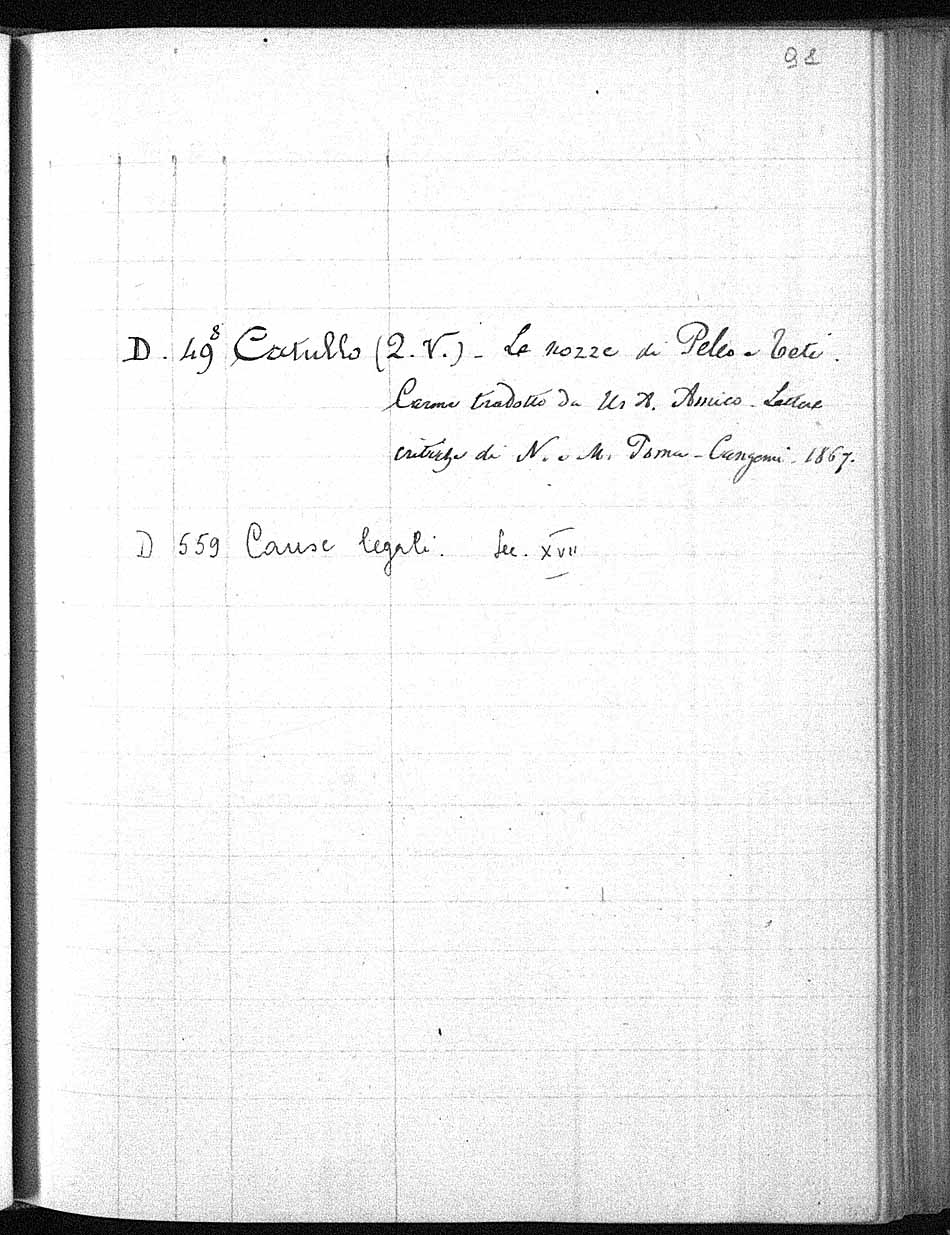 98
D. 49⁸ Catullo (Q. V.) - Le nozze di Peleo e Teti.
Carme tradotto da U. A. Amico - Lettere
critiche di N. e M. - Canzoni - 1867.
D 559 Cause legali. Sec. XVII